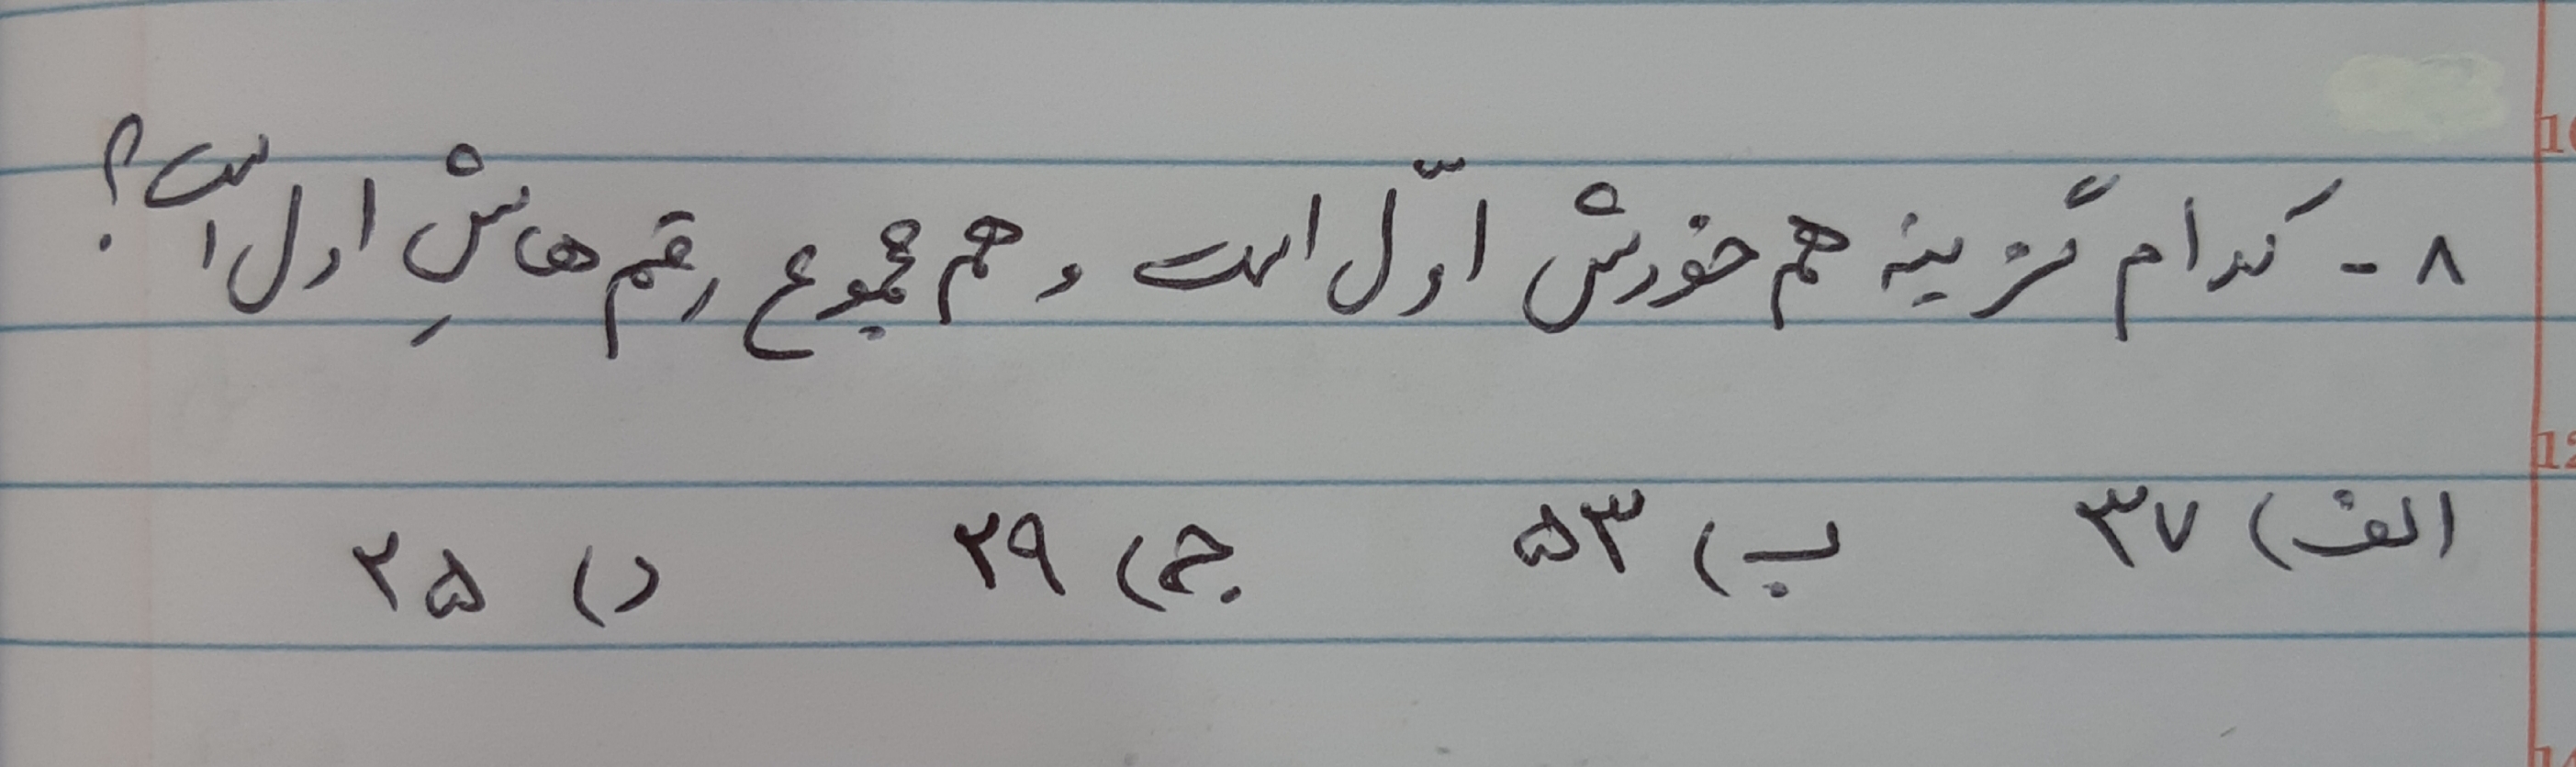 ۸- کدام گزینه هم خودش اوّل است و هم مجموع رقم هاشِ اول است؟
الف) ۳۷ ب) ۵۳ ج) ۲۹ د) ۲۵
10
12
14